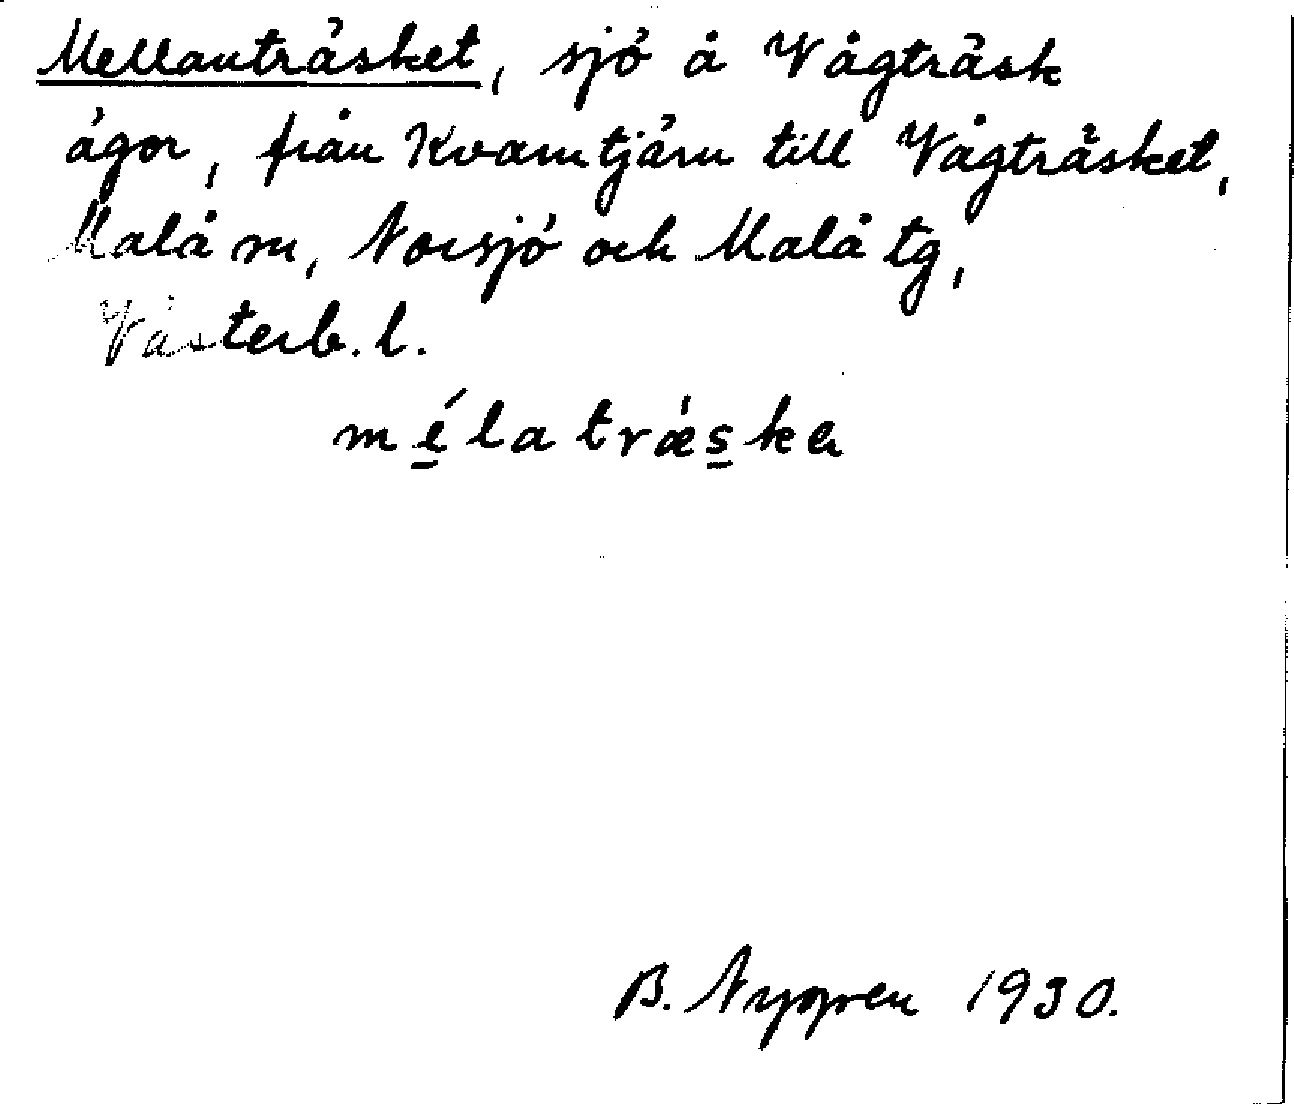 Mellanträsket, sjö å Vågträsk
ägor, från Kvarntjärn till Vågträsket,
Malå sn, Norsjö och Malå tg,
Västerb. l.
mélatrǽska
B. Nygren 1930.